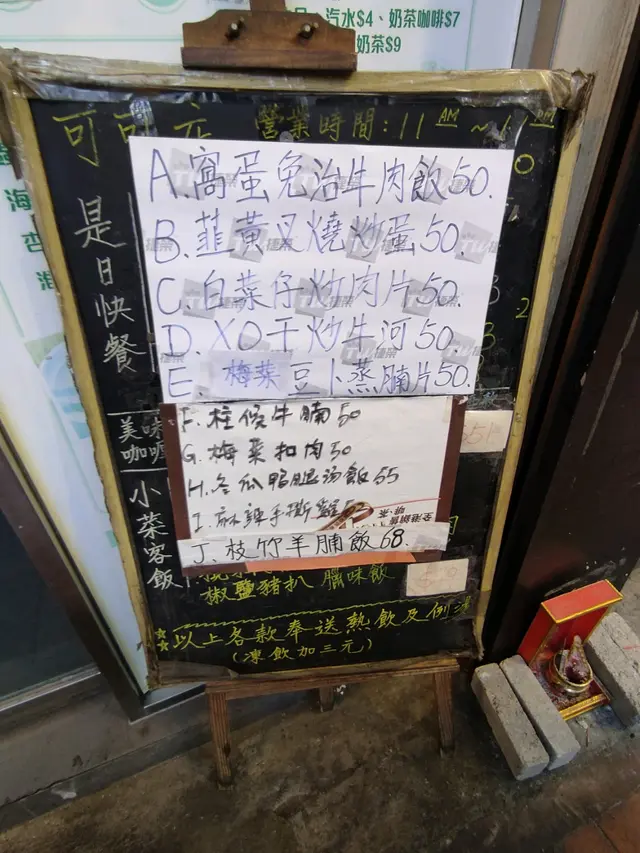 汽水$4、奶茶咖啡$7
奶茶$9
可可
營業時間：11 AM ~ 11 PM
是日快餐
A.窩蛋免治牛肉飯50.
B.韮黃叉燒炒蛋50.
C.白菜仔炒肉片50.
D.XO干炒牛河50.
E.梅菜豆卜蒸腩片50.
F.柱侯牛腩50
G.梅菜扣肉50
H.冬瓜鴨腿湯飯55
I.麻辣手撕雞
J.枝竹羊腩飯68.
美味咖喱
小菜客飯
椒鹽豬扒 臘味飯
以上各款奉送熱飲及例湯
(凍飲加三元)